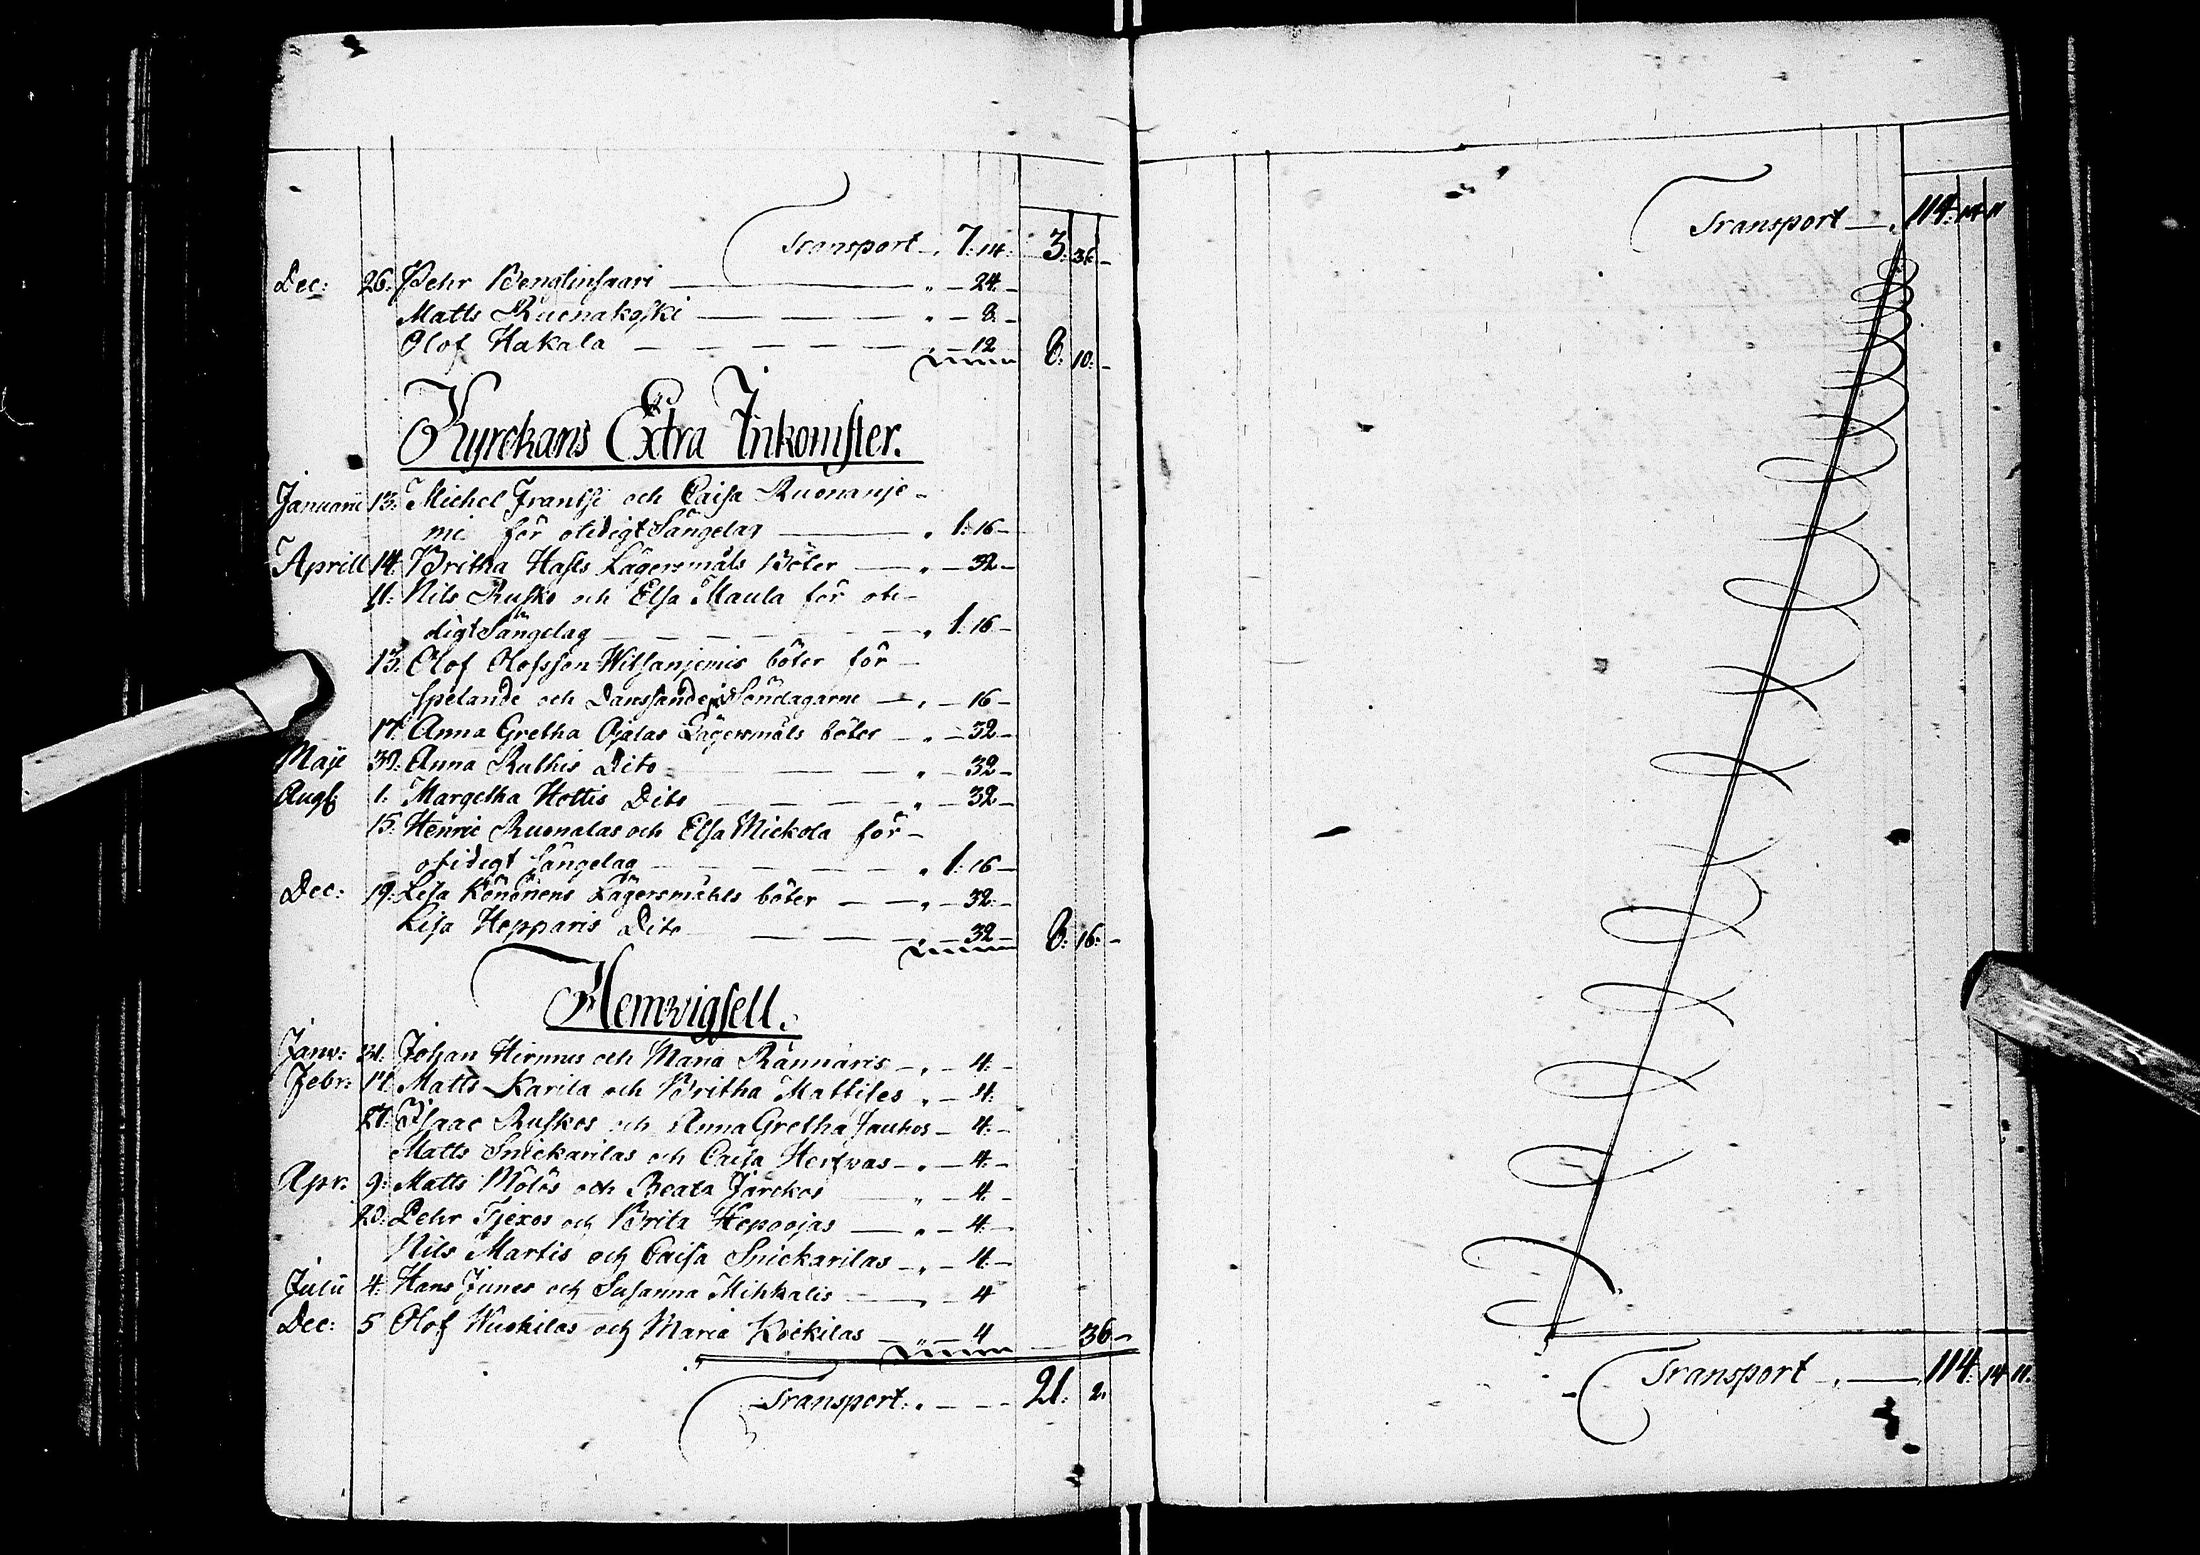 Transport 7: 14: 3: 36: -
Dec: 26: Pehr Benglinsaari " - 24 -
Matts Ruonakoski " - 8: -
Olof Hakala " - 12 8: 10: -
Kyrckans Extra Inkomster.
Januarii 13: Michel Frantsi och Caisa Ruonanje-
mi för otidigt Sängelag " 1: 16 -
Aprill 14: Britha Hasts Lägersmåls Böter " - 32 -
11: Nils Rusko och Elsa Maula för oti-
digt Sängelag " 1: 16 -
13: Olof Olofsson Witsanjemis böter för -
spelande och Danssande i Söndagarne " - 16 -
17: Anna Gretha Ojalas Lägersmåls böter - " - 32 -
Maji 30: Anna Ruthis Dito " - 32 -
Augs: 1: Margetha Hottis Dito " - 32 -
15: Henric Ruonalas och Elsa Nickola för -
otidigt Sängelag " 1: 16 -
Dec: 19: Lisa Könönens Lägersmåhls böter " - 32: -
Lisa Hepparis Dito - 32 - 8: 16: -
Hemwigsell.
Janu: 31: Johan Hirmus och Maria Rännäris - " - 4: -
Febr: 17 Matts Karila och Britha Mattiles " - 4:
27: Isaac Ruskos och Anna Gretha Jauhos - 4: -
Matts Snickarilas och Caisa Herfwas - " - 4: -
Apr: 9: Matts Mölös och Beata Järckos " - 4: -
20: Pehr Tjexos och Brita Hepoojas " - 4: -
Nils Martis och Caisa Snickarilas - " - 4: -
Julii 4: Hans Junes och Susanna Mihkalis " - 4
Dec: 5 Olof Wuokilas och Maria Kockilas - " - 4 - 36 -
Transport: " - - - 21: 2:
Transport - " 114: 14 11
Transport - " - 114: 14 11: